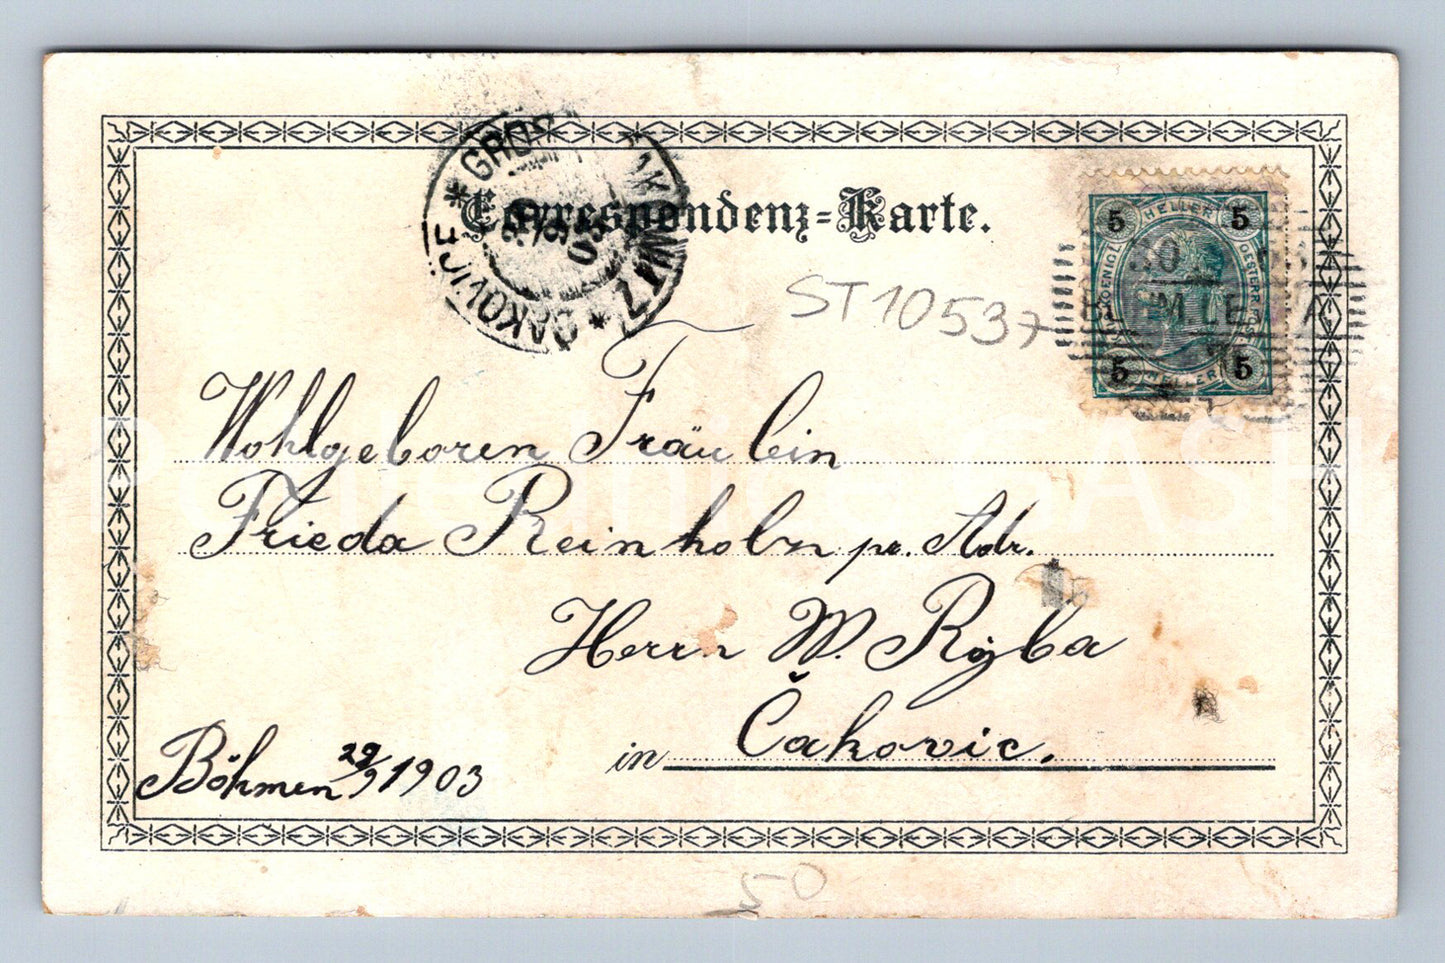 Correspondenz=Karte.
* GROSS
ČAKOVIČE *
ST10537
5 HELLER 5
5 HELLER 5
Wohlgeboren Fräulein
Frieda Reinholzn pr. Adr.
Herrn W. Rÿba
in Čakovic.
Böhmen 29/9 1903
50